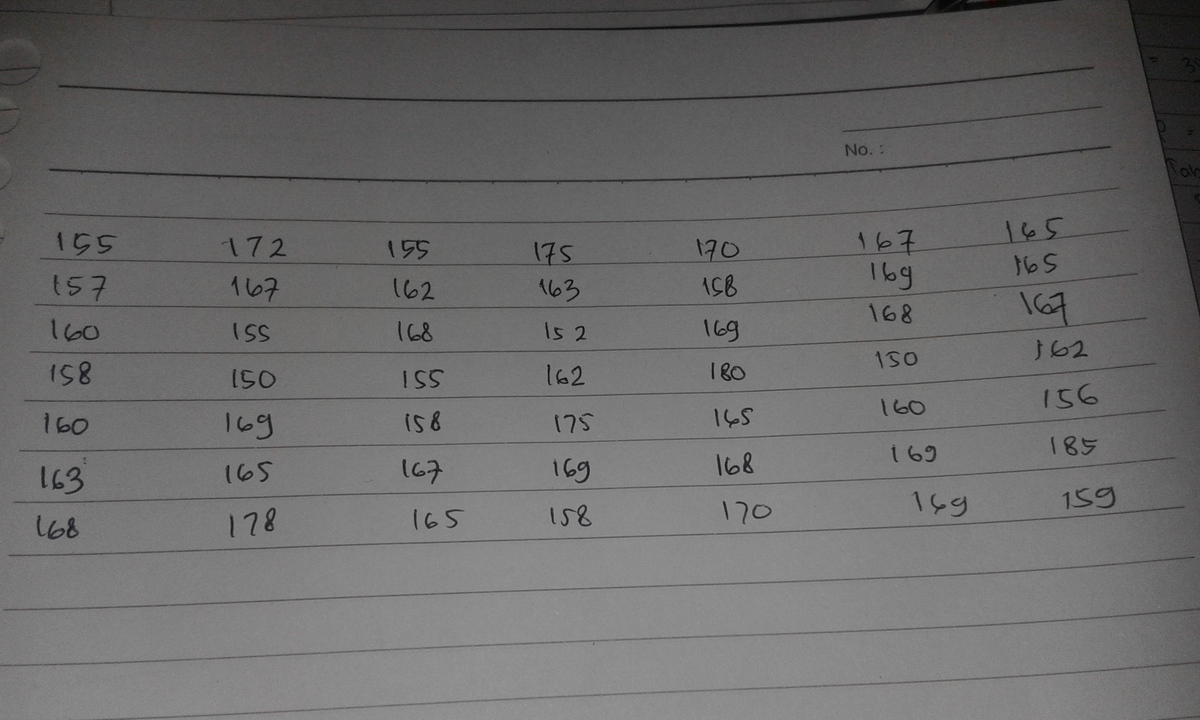 No. :
155 172 155 175 170 167 165
157 167 162 163 158 169 165
160 155 168 152 169 168 167
158 150 155 162 180 150 162
160 169 158 175 165 160 156
163 165 167 169 168 169 185
168 178 165 158 170 169 159